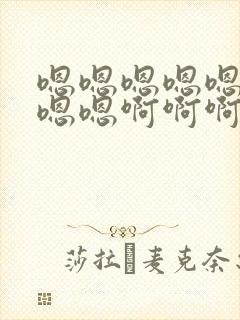 嗯嗯嗯嗯嗯
嗯嗯啊啊啊
莎拉麦克奈